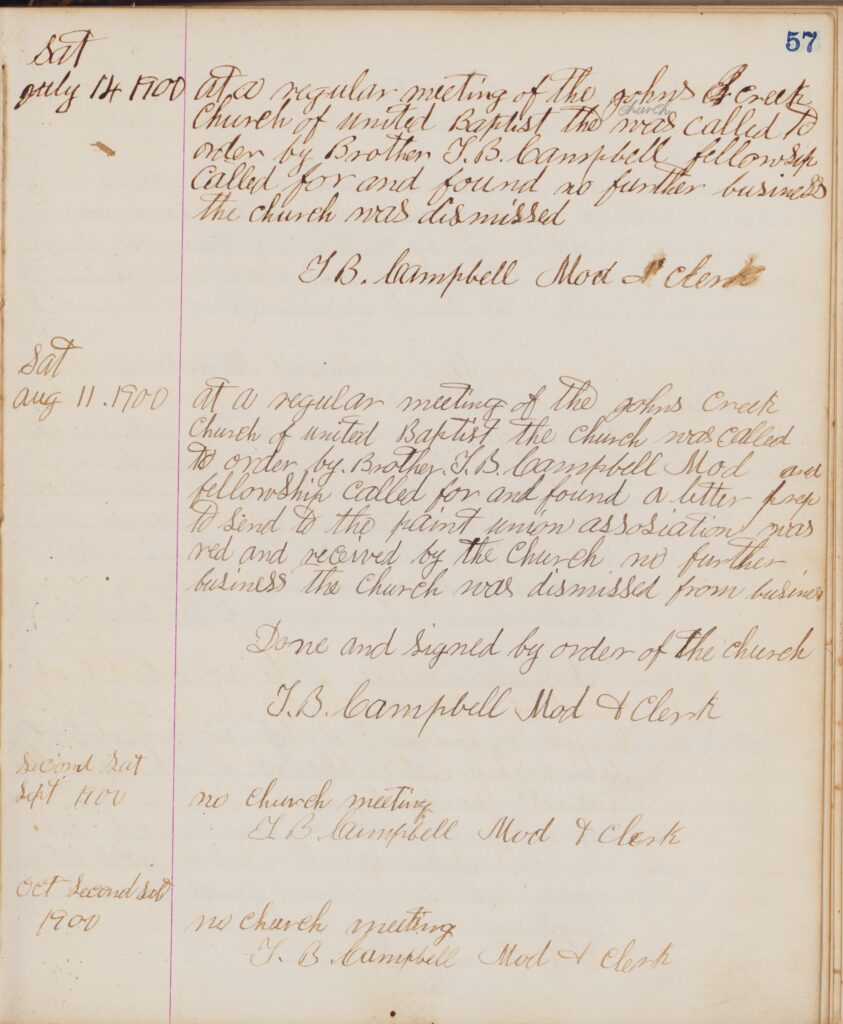 57
Sat
July 14 1900
at a regular meeting of the Johns Creek
church
Church of united Baptist the was called to
order by Brother T. B. Campbell fellowship
called for and found no further business
the church was dismissed
T B. Campbell Mod & Clerk
Sat
aug 11. 1900
at a regular meeting of the Johns Creek
Church of united Baptist the church was called
to order by. Brother. T. B. Campbell Mod and
fellowship called for and found a letter prep
to send to the paint union assosiation was
red and received by the Church no further
business the church was dismissed from business
Done and signed by order of the church
T. B. Campbell Mod & Clerk
Second Sat
Sept 1900
no church meeting
T B Campbell Mod & Clerk
Oct Second Sat
1900
no church meeting
T. B Campbell Mod & Clerk